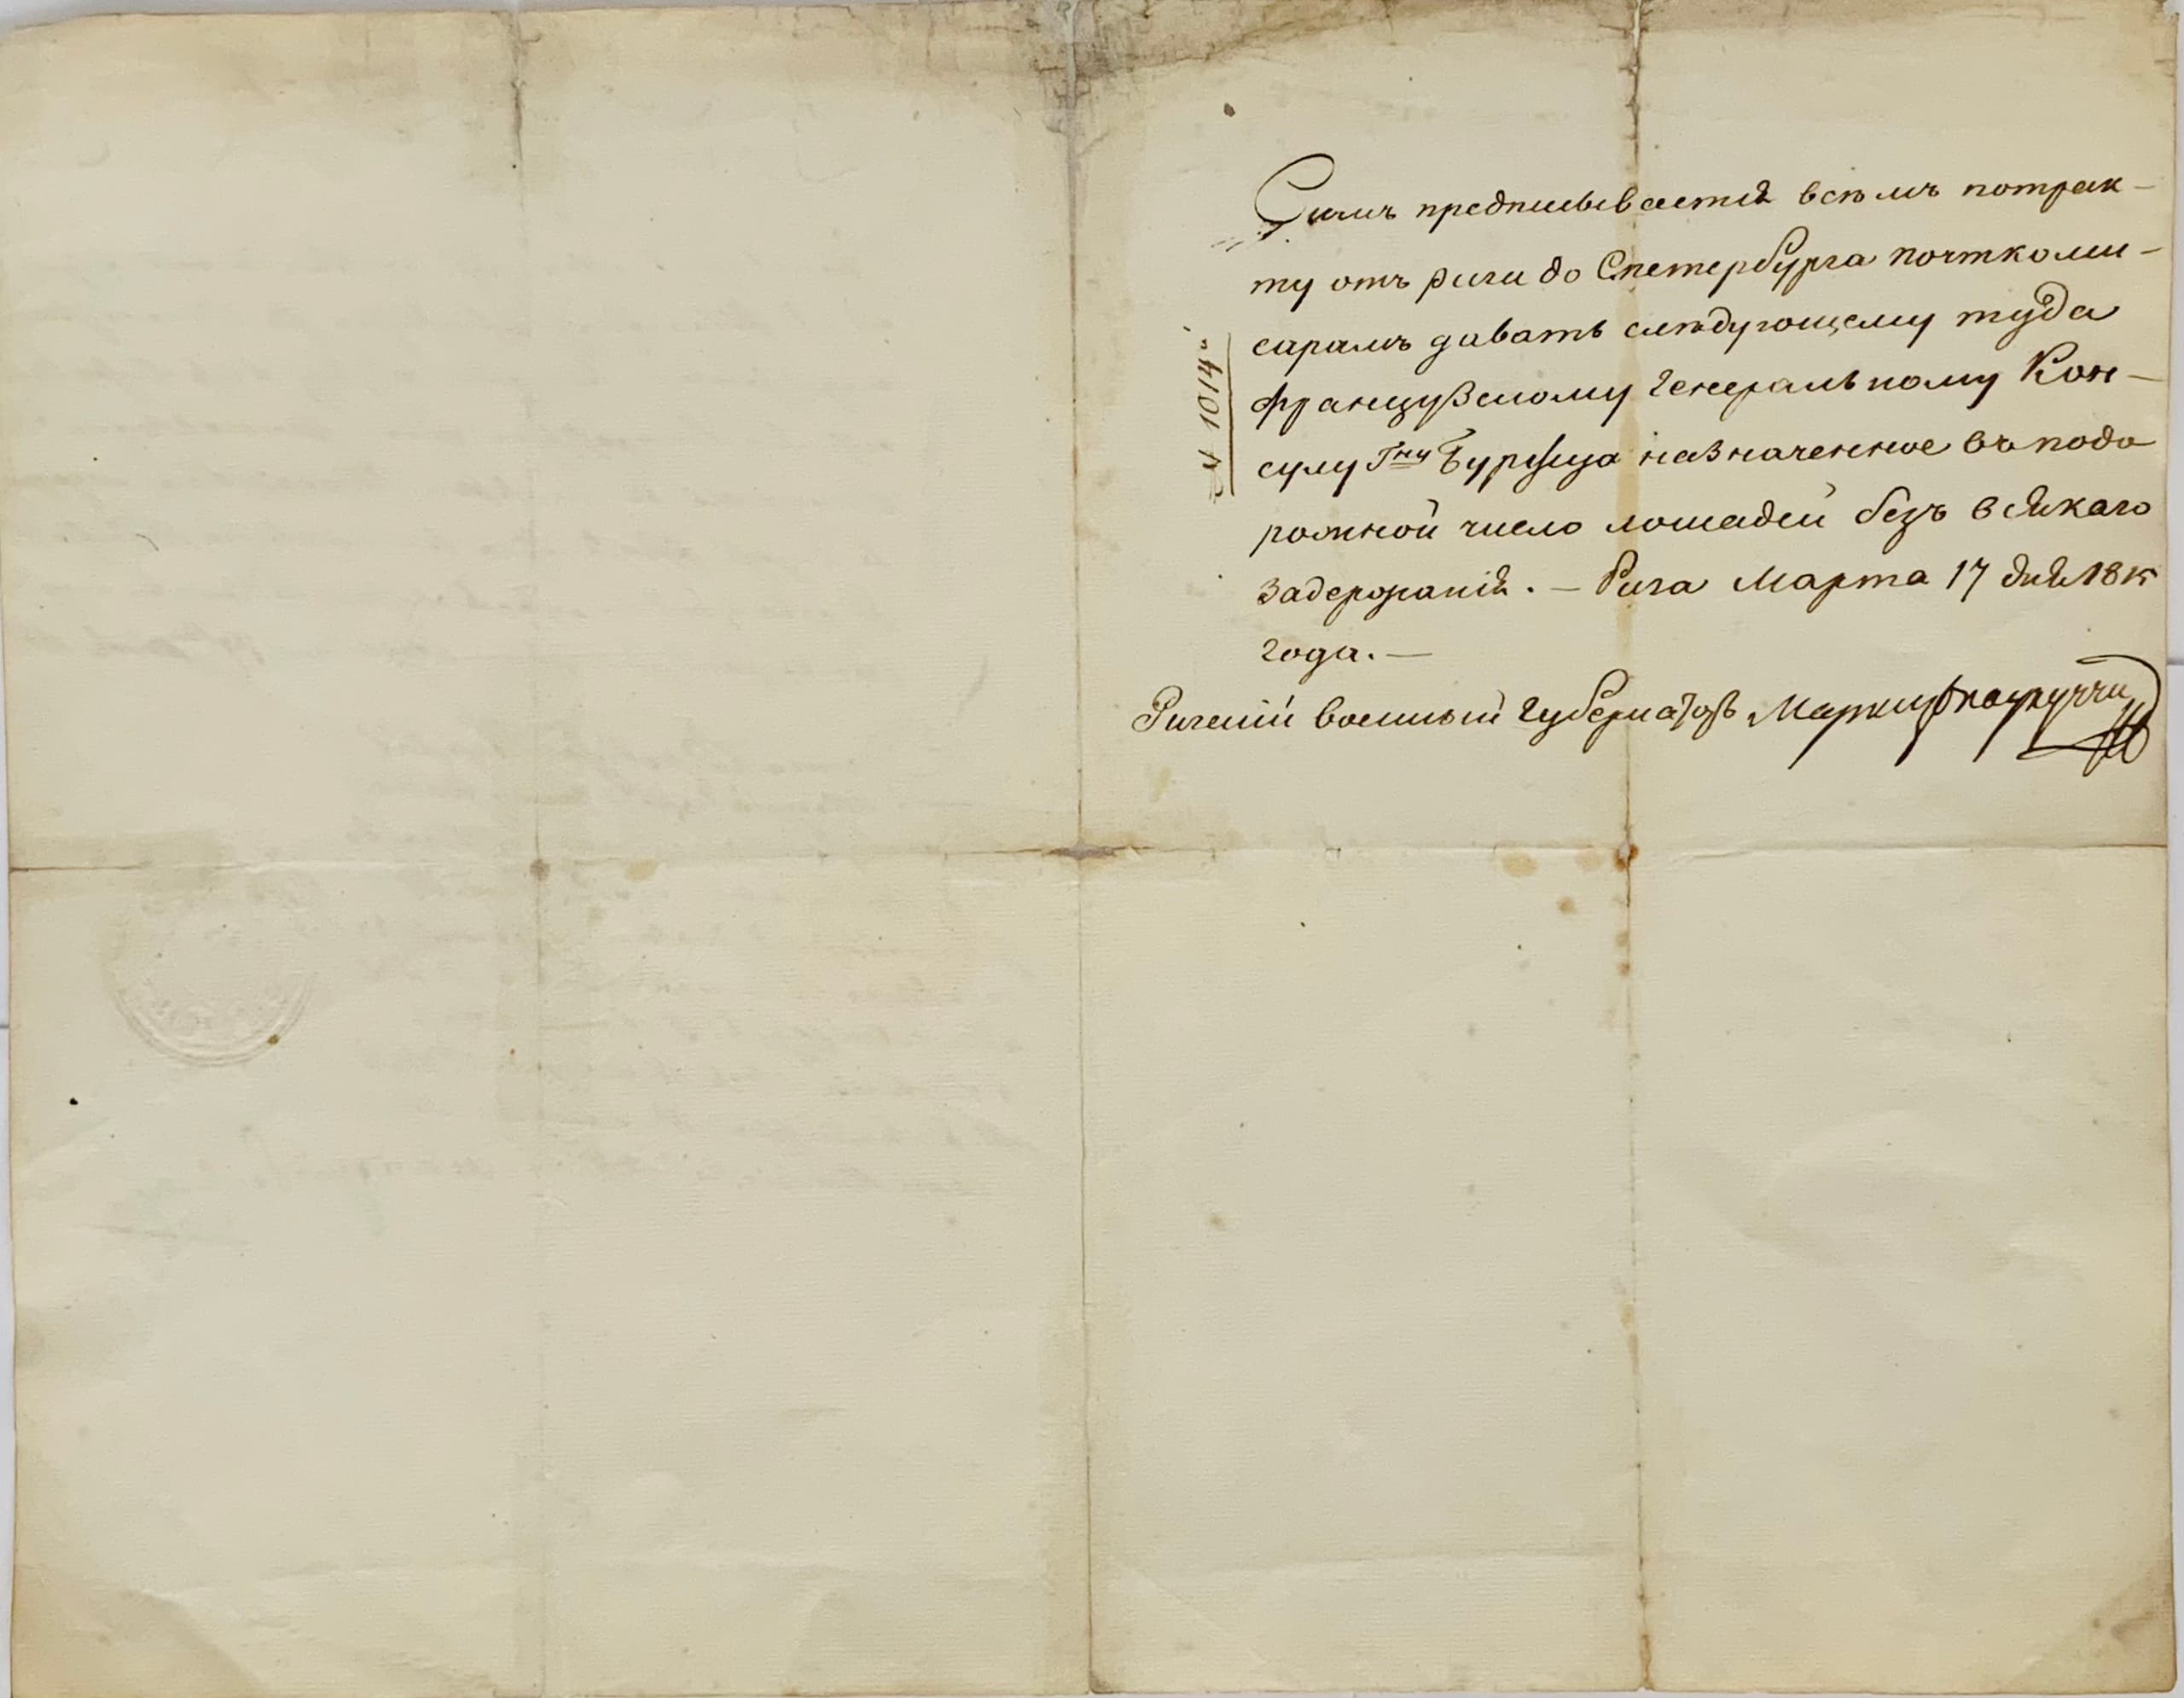 Симъ предписывается всѣмъ потрак-
ту отъ риги до Спетербурга почткоми-
сарамъ давать слѣдующему туда
французскому Генеральному Кон-
сулу Гну назначенное въ подо
рожной число лошадей безъ всякаго
задержанія. — Рига Марта 17 дня 1815
года. —
Рижскій военный губернаторъ Маркизъ паулуччи
№ 1014й